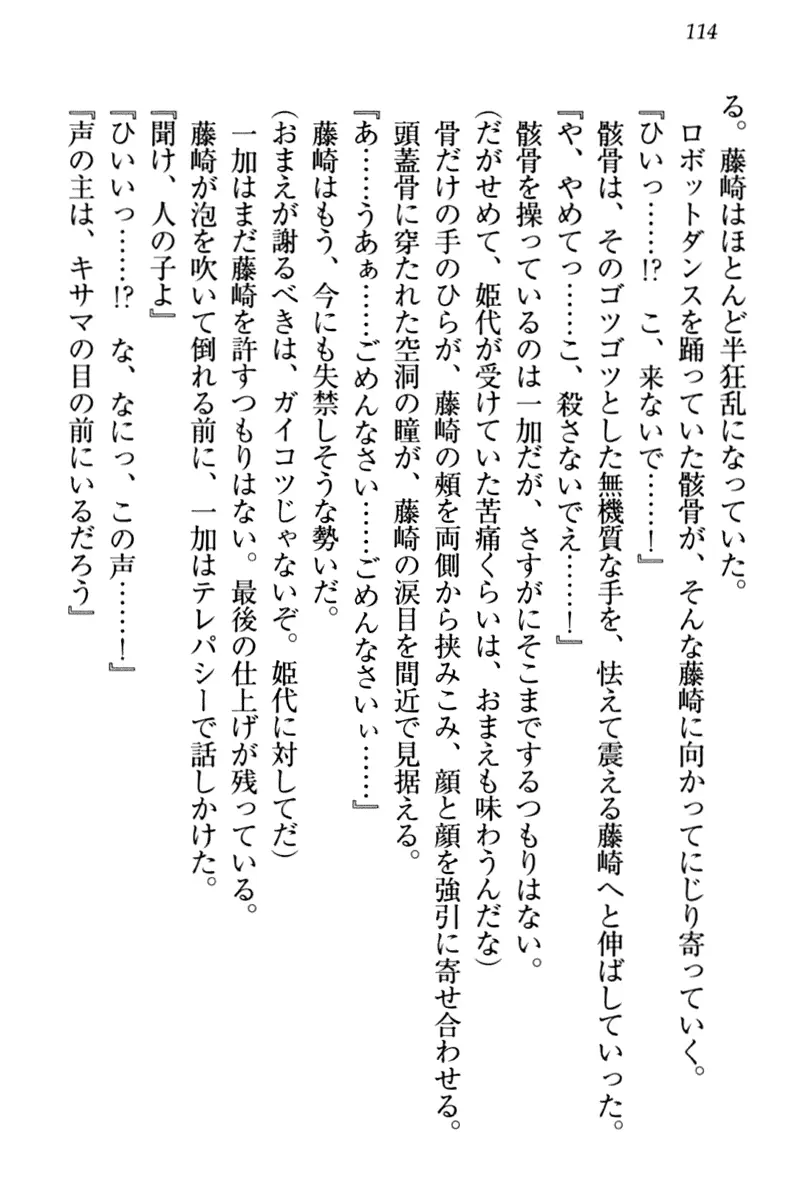 114
る。藤崎はほとんど半狂乱になっていた。
ロボットダンスを踊っていた骸骨が、そんな藤崎に向かってにじり寄っていく。
『ひいっ……!?　こ、来ないで……！』
骸骨は、そのゴツゴツとした無機質な手を、怯えて震える藤崎へと伸ばしていった。
『や、やめてっ……こ、殺さないでえ……！』
骸骨を操っているのは一加だが、さすがにそこまでするつもりはない。
(だがせめて、姫代が受けていた苦痛くらいは、おまえも味わうんだな)
骨だけの手のひらが、藤崎の頬を両側から挟みこみ、顔と顔を強引に寄せ合わせる。
頭蓋骨に穿たれた空洞の瞳が、藤崎の涙目を間近で見据える。
『あ……うあぁ……ごめんなさい……ごめんなさいぃ……』
藤崎はもう、今にも失禁しそうな勢いだ。
(おまえが謝るべきは、ガイコツじゃないぞ。姫代に対してだ)
一加はまだ藤崎を許すつもりはない。最後の仕上げが残っている。
藤崎が泡を吹いて倒れる前に、一加はテレパシーで話しかけた。
『聞け、人の子よ』
『ひいいっ……!?　な、なにっ、この声……！』
『声の主は、キサマの目の前にいるだろう』